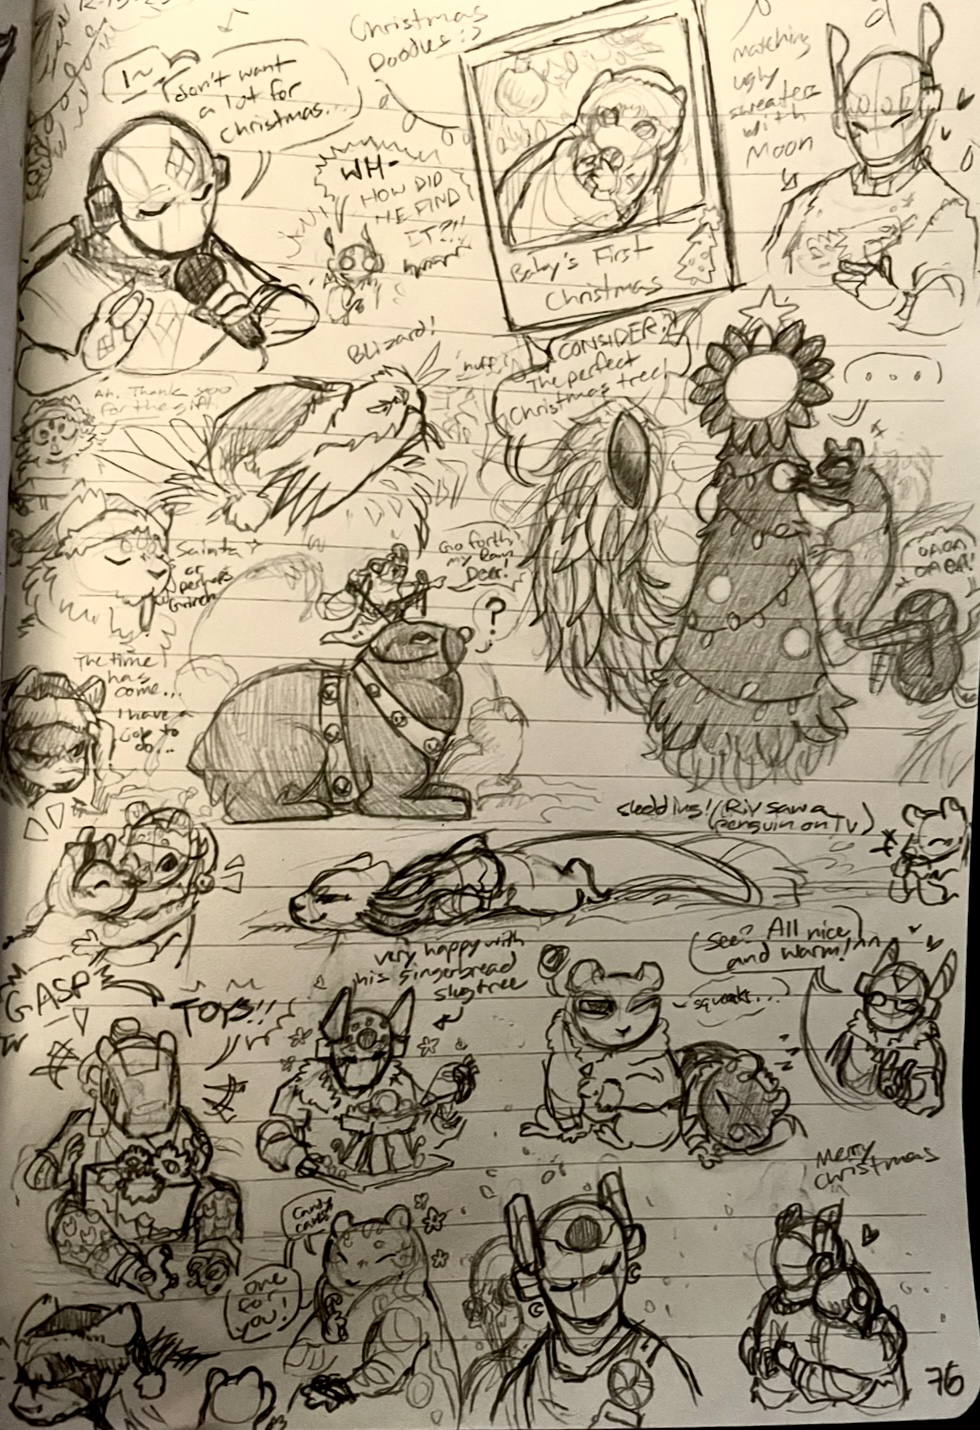 Christmas
Doodles :3
I~
don't want
a lot for
Christmas...
WH-
HOW DID
HE FIND
IT?!!
Baby's First
Christmas
matching
ugly
sweaters
with
Moon
Blizard!
Ah. Thank you
for the gift!
CONSIDER!
The perfect
Christmas tree!
...
Santa?
or
perhaps
Grinch
Go forth,
my Rain
Deer!
?
The time
has
come...
I have a
job to
do...
sledding! (Riv saw a
penguin on TV)
GASP
TOYS!!
very happy with
his gingerbread
slugtree
See? All nice
and warm!
squeaks...
Merry
Christmas
candy
canes!
one
for
you!
76